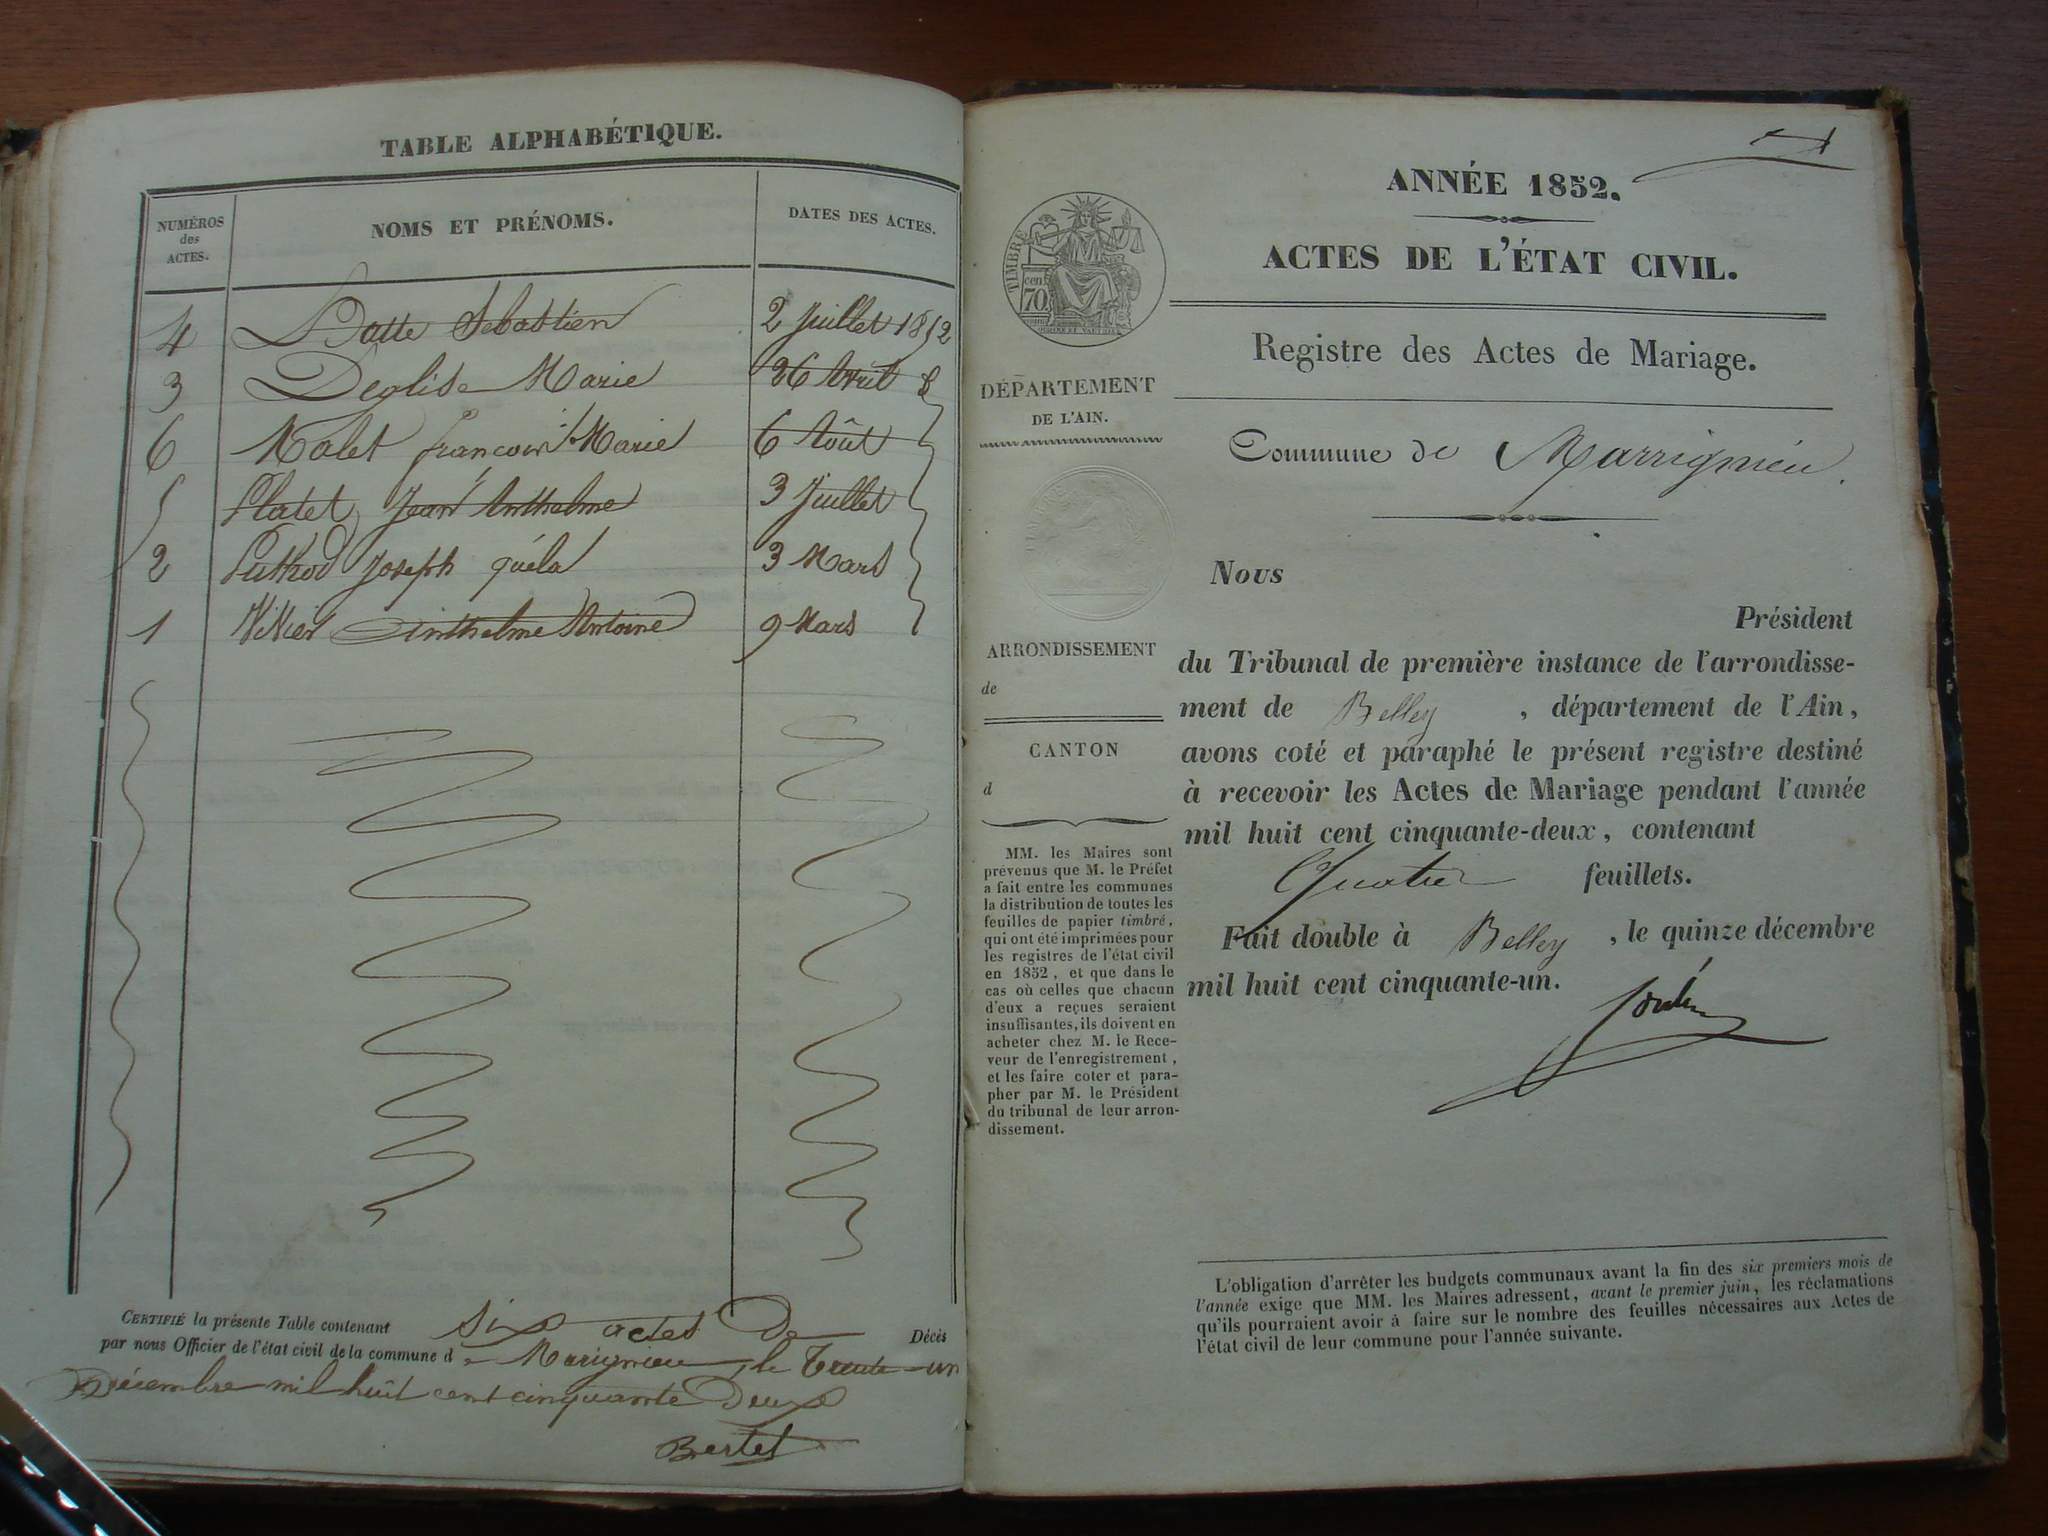 TABLE ALPHABÉTIQUE.
NUMÉROS
des
ACTES.
NOMS ET PRÉNOMS.
DATES DES ACTES.
4 Batte Sebastien 2 Juillet 1852
3 Deglise Marie 26 Avril
6 Malet francois Marie 6 Août
5 Platet Jean Anthelme 3 Juillet
2 Puthod Joseph 3 Mars
1 Anthelme Antoine 9 Mars
CERTIFIÉ la présente Table contenant six actes De Décès
par nous Officier de l'état civil de la commune de Marignieu, le Trente-un
Décembre mil huit cent cinquante Deux
Bertet
1
ANNÉE 1852.
ACTES DE L'ÉTAT CIVIL.
Registre des Actes de Mariage.
TIMBRE
70 cen.
DÉPARTEMENT
DE L'AIN.
Commune de Marrignieu.
ARRONDISSEMENT
de
CANTON
d
MM. les Maires sont
prévenus que M. le Préfet
a fait entre les communes
la distribution de toutes les
feuilles de papier timbré,
qui ont été imprimées pour
les registres de l'état civil
en 1852, et que dans le
cas où celles que chacun
d'eux a reçues seraient
insuffisantes, ils doivent en
acheter chez M. le Rece-
veur de l'enregistrement,
et les faire coter et para-
pher par M. le Président
du tribunal de leur arron-
dissement.
Nous
Président
du Tribunal de première instance de l'arrondisse-
ment de Belley, département de l'Ain,
avons coté et paraphé le présent registre destiné
à recevoir les Actes de Mariage pendant l'année
mil huit cent cinquante-deux, contenant
Quatre feuillets.
Fait double à Belley, le quinze décembre
mil huit cent cinquante-un.
L'obligation d'arrêter les budgets communaux avant la fin des six premiers mois de
l'année exige que MM. les Maires adressent, avant le premier juin, les réclamations
qu'ils pourraient avoir à faire sur le nombre des feuilles nécessaires aux Actes de
l'état civil de leur commune pour l'année suivante.